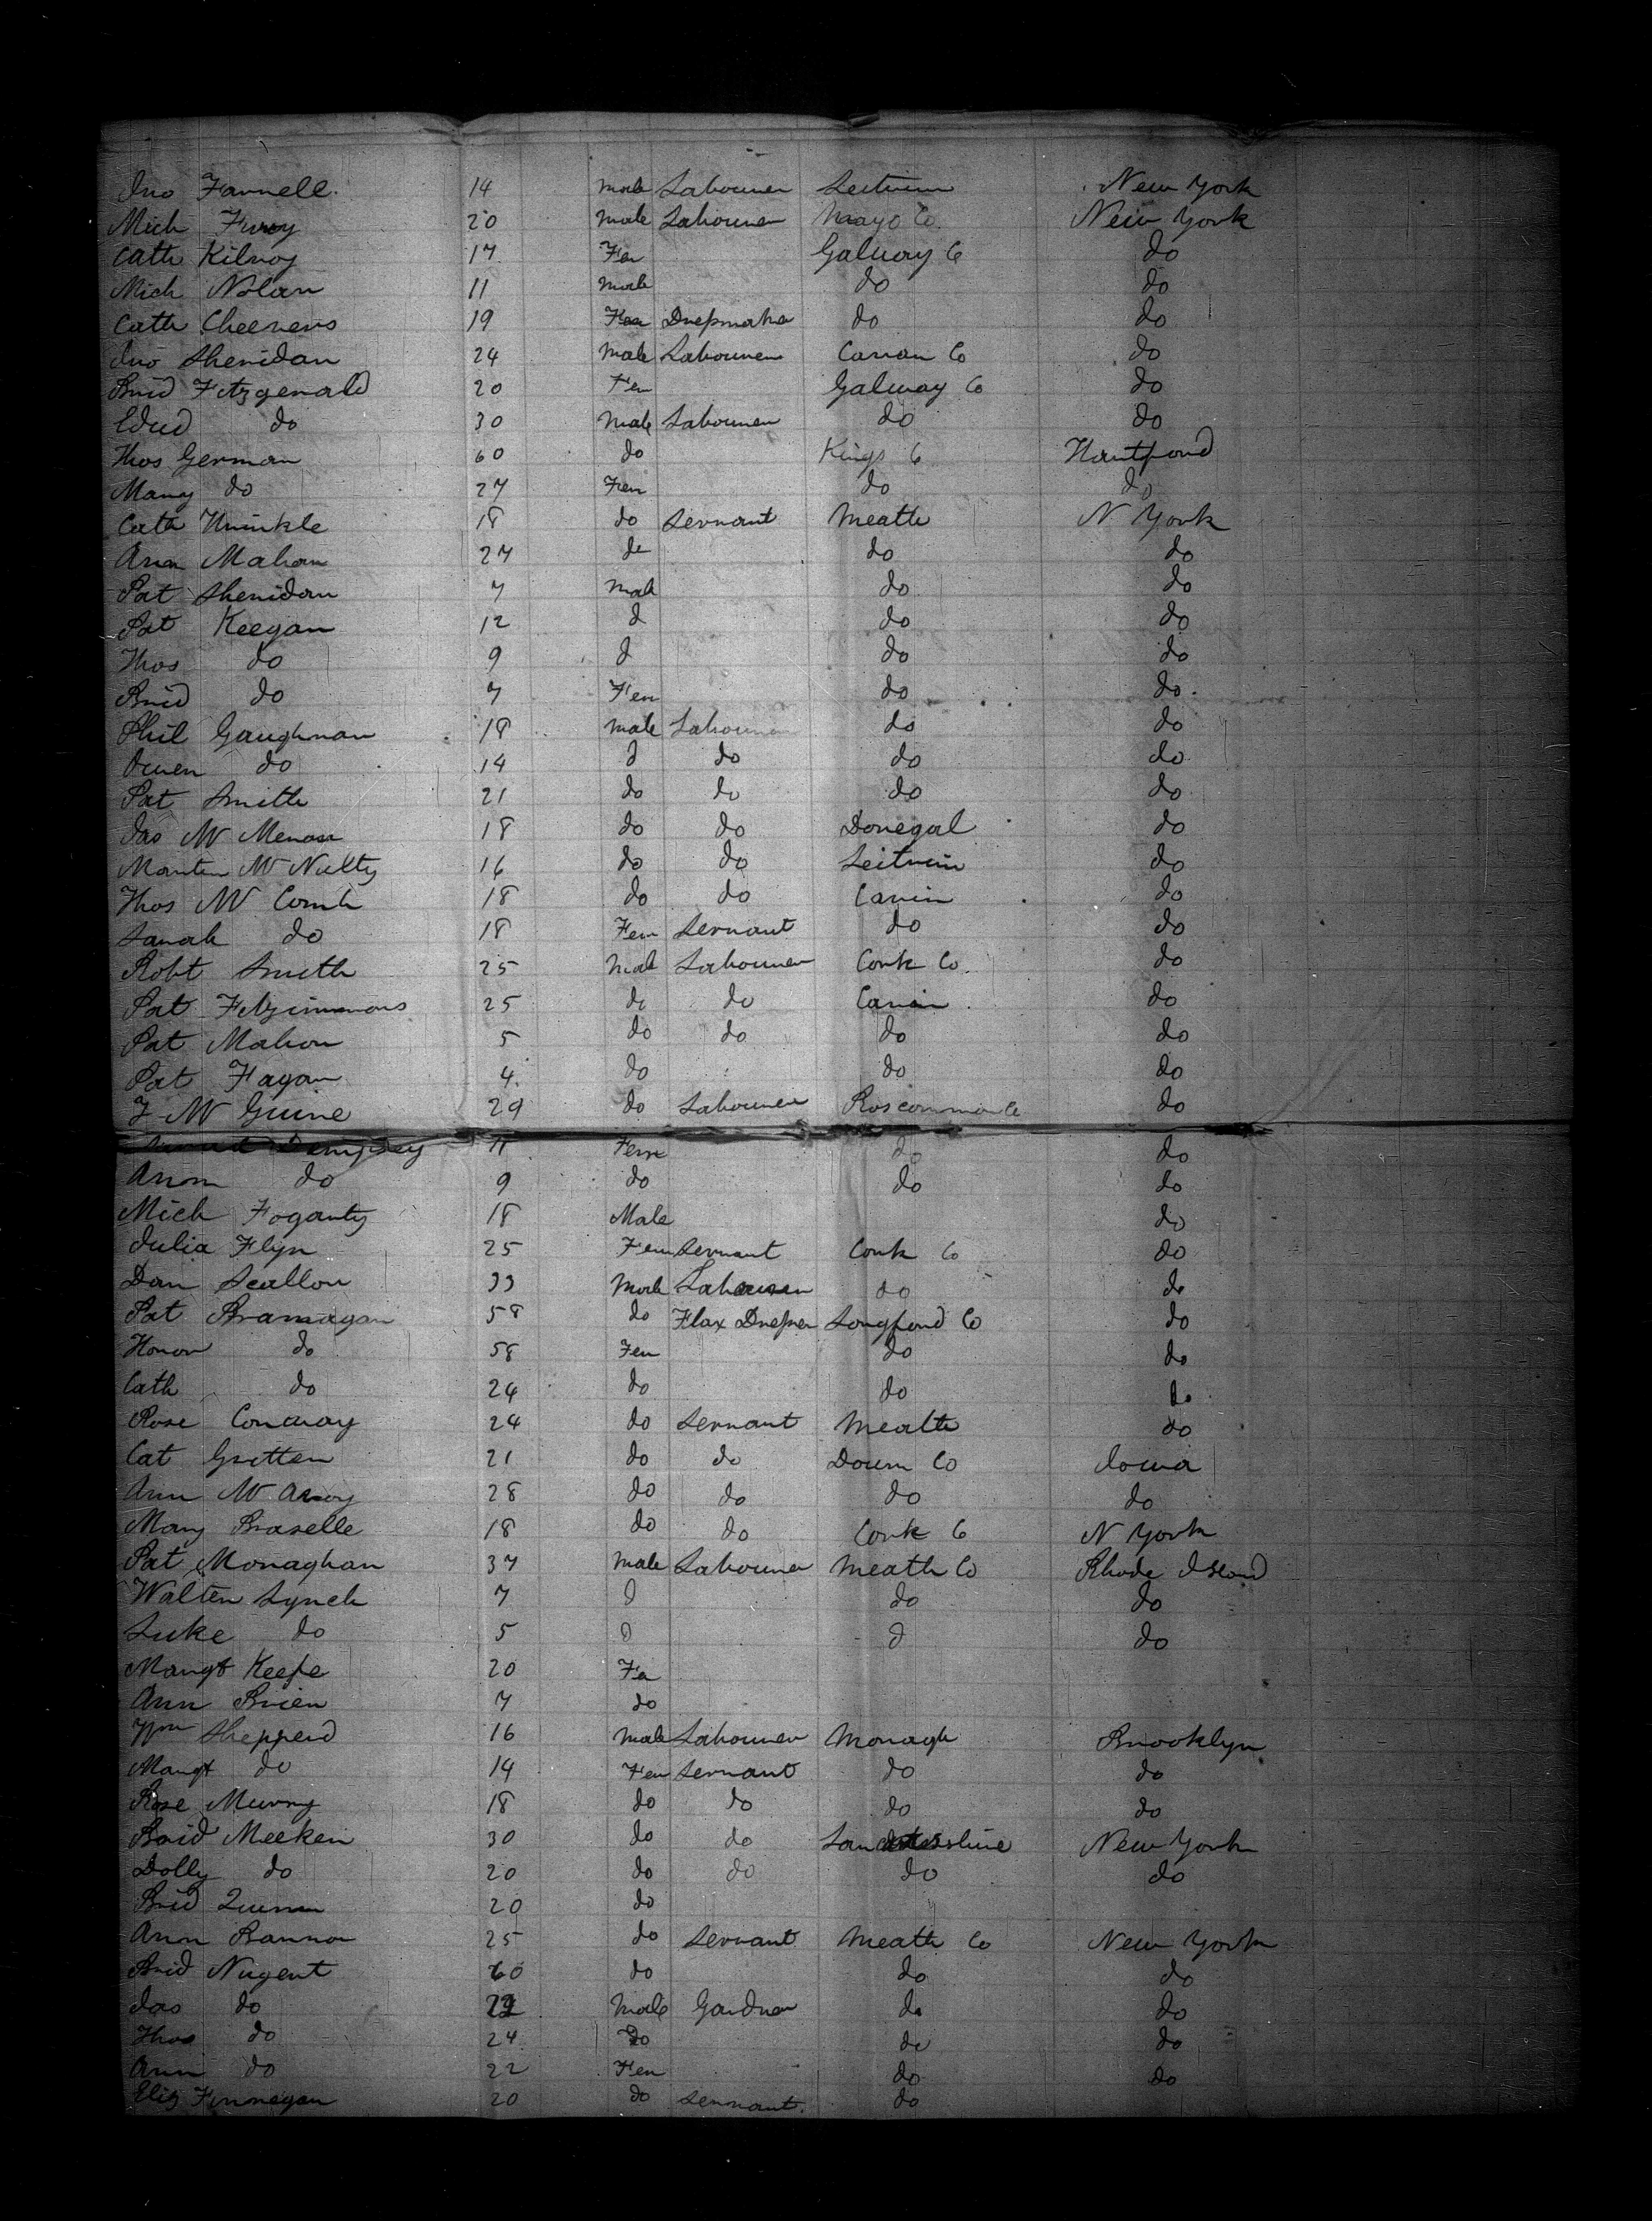 Jno Farrell 14 male Labourer Leitrim New York
Mich Furey 20 male Labourer Mayo Co. New York
Cath Kilroy 17 Fem Galway Co do
Mich Nolan 11 male do do
Cath Cheevers 19 Fem Dressmaker do do
Jno Sheridan 24 male Labourer Cavan Co do
Brid Fitzgerald 20 Fem Galway Co do
Edwd do 30 male Labourer do do
Thos German 60 do Kings Co Hartford
Mary do 27 Fem do do
Cath Hrinkle 18 do Servant Meath N York
Ann Mahon 27 do do do
Pat Sheridan 7 male do do
Pat Keegan 12 d do do
Thos do 9 d do do
Brid do 7 Fem do do
Phil Gaughran 18 male Labourer do do
Owen do 14 d do do do
Pat Smith 21 do do do do
Jas Mc Menan 18 do do Donegal do
Martin Mc Nulty 16 do do Leitrim do
Thos Mc Comb 18 do do Cavin do
Sarah do 18 Fem Servant do do
Robt Smith 25 male Labourer Cork Co. do
Pat Fitzsimmons 25 do do Cavan do
Pat Mahon 5 do do do do
Pat Fagan 4 do do do
J Mc Guire 29 do Labourer Roscommon Co do
Dempsey 11 Fem do do
Ann do 9 do do do
Mich Fogarty 18 Male do
Julia Flyn 25 Fem Servant Cork Co do
Dan Scallon 33 male Labourer do do
Pat Branagan 58 do Flax Dresser Longford Co do
Honor do 58 Fem do do
Cath do 24 do do do
Rose Conway 24 do Servant Meath do
Cat Gritten 21 do do Down Co Iowa
Ann Mc Avoy 28 do do do do
Mary Braselle 18 do do Cork Co N York
Pat Monaghan 37 male Labourer Meath Co Rhode Island
Walter Lynch 7 d do do
Luke do 5 d d do
Margt Keefe 20 Fe
Ann Brien 7 do
Wm Shepperd 16 male Labourer Monagh Brooklyn
Margt do 14 Fem Servant do do
Rose Murry 18 do do do do
Brid Meeken 30 do do New York
Dolly do 20 do do do do
Brid Quinn 20 do
Ann Bannon 25 do Servant Meath Co New York
Brid Nugent 60 do do do
Jas do male Gardner do do
Thos do 24 do do do
Ann do 22 Fem do do
Eliz Finnegan 20 do Servant do